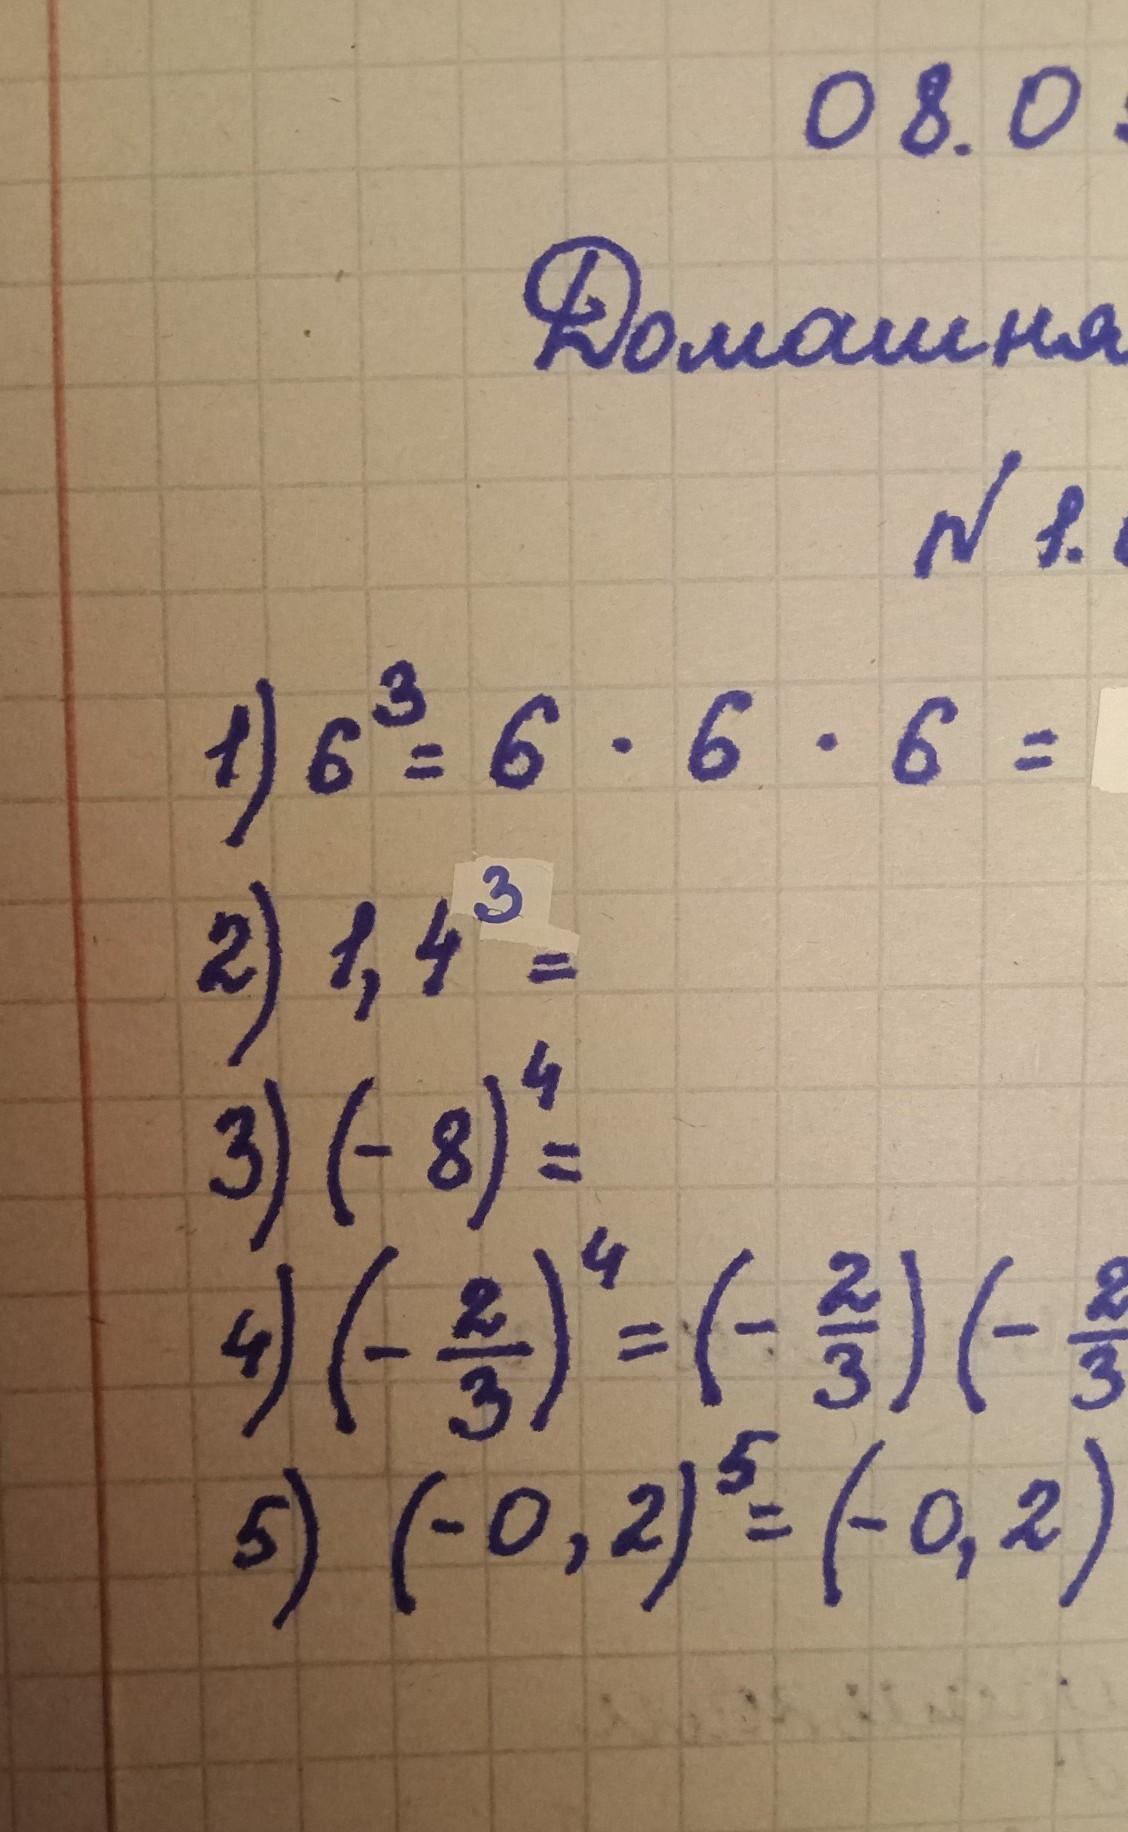 08.0
Домашня
№ 1.
1) 6³ = 6 · 6 · 6 =
2) 1,4³ =
3) (- 8)⁴ =
4) (- 2/3)⁴ = (- 2/3) (- 2/3
5) (-0,2)⁵ = (-0,2)